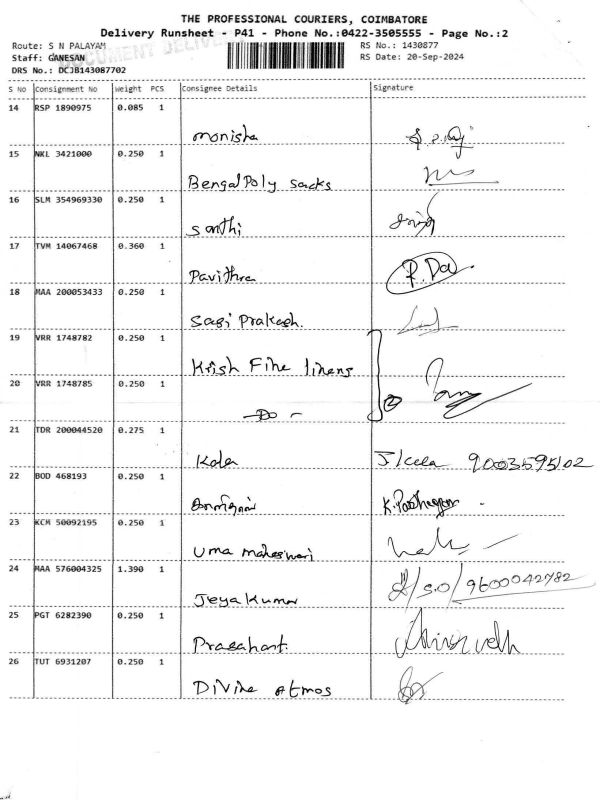 THE PROFESSIONAL COURIERS, COIMBATORE
Delivery Runsheet - P41 - Phone No.:0422-3505555 - Page No.:2
Route: S N PALAYAM RS No.: 1430877
Staff: GANESAN RS Date: 20-Sep-2024
DRS No.: DCJB143087702
DOCUMENT DELIVE
S No Consignment No Weight PCS Consignee Details Signature
14 RSP 1890975 0.085 1
Monisha
15 NKL 3421000 0.250 1
Bengal Poly Sacks
16 SLM 354969330 0.250 1
Santhi
17 TVM 14067468 0.360 1
Pavithra P.Da
18 MAA 200053433 0.250 1
Sagi Prakash.
19 VRR 1748782 0.250 1
Krish Fine linens
20 VRR 1748785 0.250 1
-Do - 2
21 TDR 200044520 0.275 1
Kala J/Keela 9003595102
22 BOD 468193 0.250 1
23 KCM 50092195 0.250 1
Uma maheswari
24 MAA 576004325 1.390 1
Jeyakumar /S.O/9600042782
25 PGT 6282390 0.250 1
Prasahant.
26 TUT 6931207 0.250 1
Divine Atmos